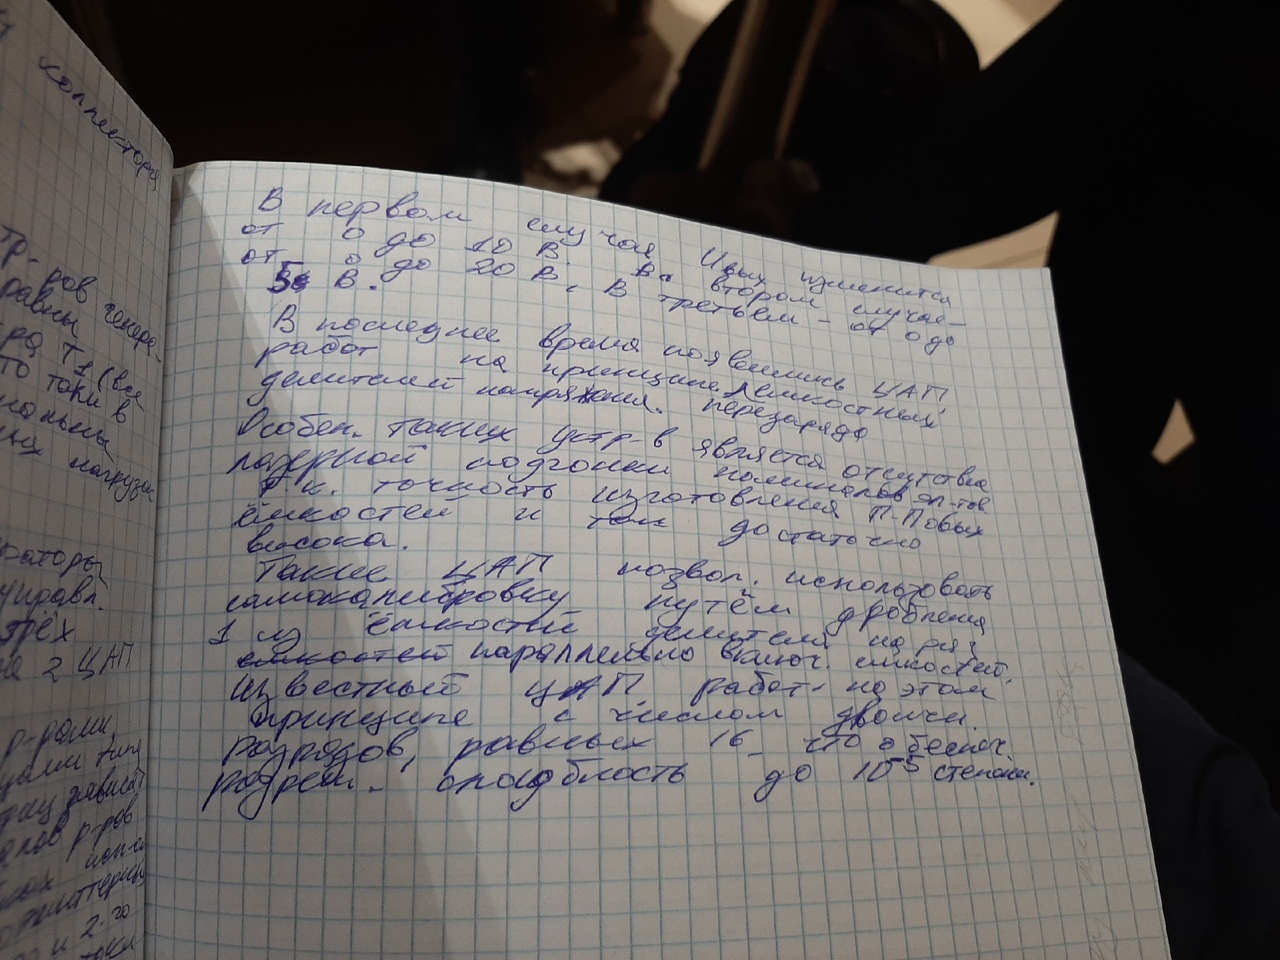 коллектора
тр-ров
равны генера-
ра Т1 (все
То токи в
нагрузок
раторы
управл.
трёх
на 2 ЦАП
р-рами,
зависят
р-ров
и 2-го
токи
В первом случае Uвых изменится
от 0 до 10 В. Во втором случае-
от 0 до 20 В, В третьем - от 0 до
5 В.
В последнее время появились ЦАП
работ на принципе перезаряда
делителей напряжения. ёмкостных
Особен. таких устр-в является отсутствие
лазерной подгонки номиналов эл-тов
т.к. точность изготовления П-Повых
ёмкостей и так достаточно
высока.
Такие ЦАП позвол. использовать
самокалибровку путём дробления
1 из ёмкостей делителя на ряд
емкостей параллельно включ. емкостей.
Известный ЦАП работ. на этом
принципе с числом двоичн.
разрядов, равных 16 - что обеспеч.
разреш. способность до 10⁻⁵ степени.